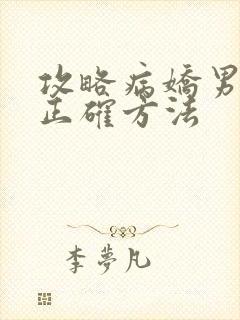 攻略病嬌男
正確方法
李夢凡